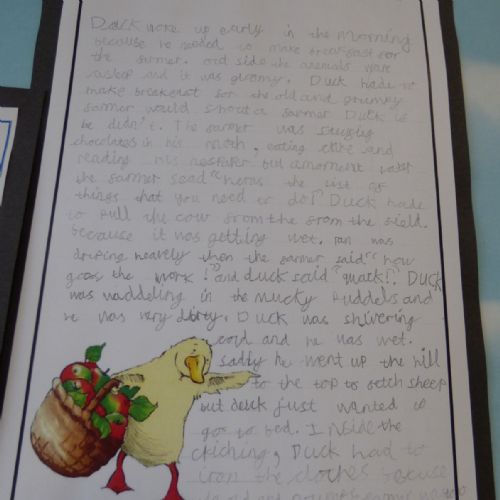 Duck woke up early in the morning
because he needed to make breakfast for
the farmer. out side the animals were
asleep and it was gloomy. Duck had to
make breakfast for the old and grumpy
farmer would shout a farmer Duck if
he didn't. The farmer was stuffing
chocolates in his mouth, eating cake and
reading his newspaper but a moment later
the farmer sead "heres the list of
things that you need to do!" Duck had
to pull the cow from the from the field.
because it was getting wet. rain was
driping heavely then the farmer said "how
goes the work!" and duck said "quack!". Duck
was waddeling in the mucky puddels and
he was very dirty. Duck was shivering
cold and he was wet.
sadly he went up the hill
to the top to fetch sheep
but duck just wanted to
go to bed. Inside the
citching, Duck had to
iron the clothes because